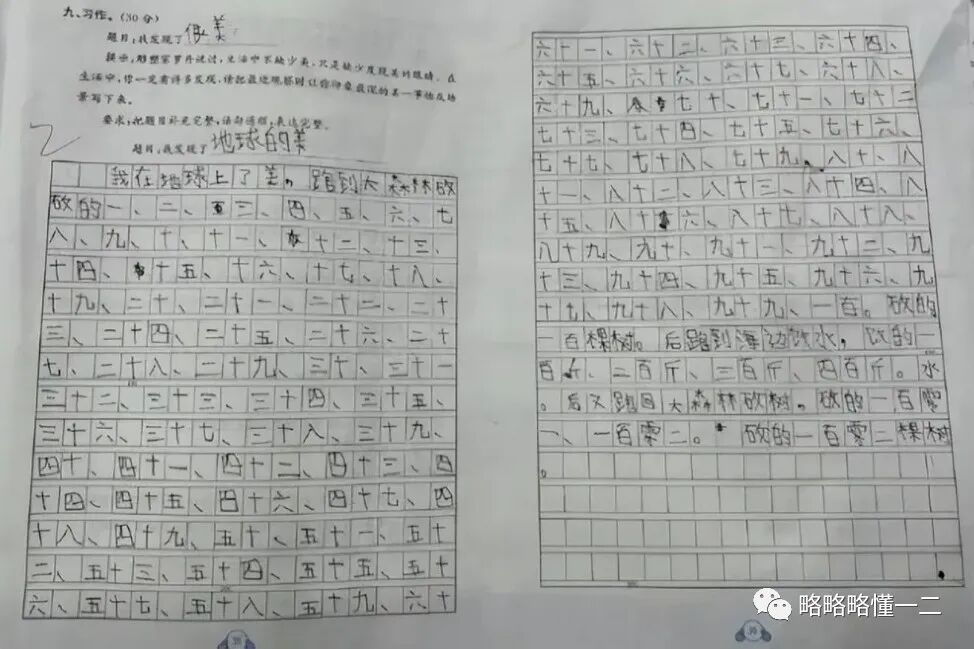 九、习作。(30分)
题目:我发现了 很美
提示:雕塑家罗丹说过,生活中不缺少美,只是缺少发现美的眼睛。在
生活中,你一定有许多发现,请把最近观察时让你印象最深的某一事物或场
景写下来。
要求:把题目补充完整,语句通顺,表达完整。
题目:我发现了 地球的美
我在地球上了美。跑到大森林砍
砍的一、二、三、四、五、六、七
八、九、十、十一、十二、十三、
十四、十五、十六、十七、十八、
十九、二十、二十一、二十二、二十
三、二十四、二十五、二十六、二十
七、二十八、二十九、三十、三十一
三十二、三十三、三十四、三十五、
三十六、三十七、三十八、三十九、
四十、四十一、四十二、四十三、四
十四、四十五、四十六、四十七、四
十八、四十九、五十、五十一、五十
二、五十三、五十四、五十五、五十
六、五十七、五十八、五十九、六十
六十一、六十二、六十三、六十四、
六十五、六十六、六十七、六十八、
六十九、七十、七十一、七十二
七十三、七十四、七十五、七十六、
七十七、七十八、七十九、八十、八
十一、八十二、八十三、八十四、八
十五、八十六、八十七、八十八、
八十九、九十、九十一、九十二、九
十三、九十四、九十五、九十六、九
十七、九十八、九十九、一百。砍的
一百棵树。后跑到海边饮水,饮的一
百斤、二百斤、三百斤、四百斤。水
。后又跑回大森林砍树。砍的一百零
一、一百零二。砍的一百零二棵树
。
略略略懂一二